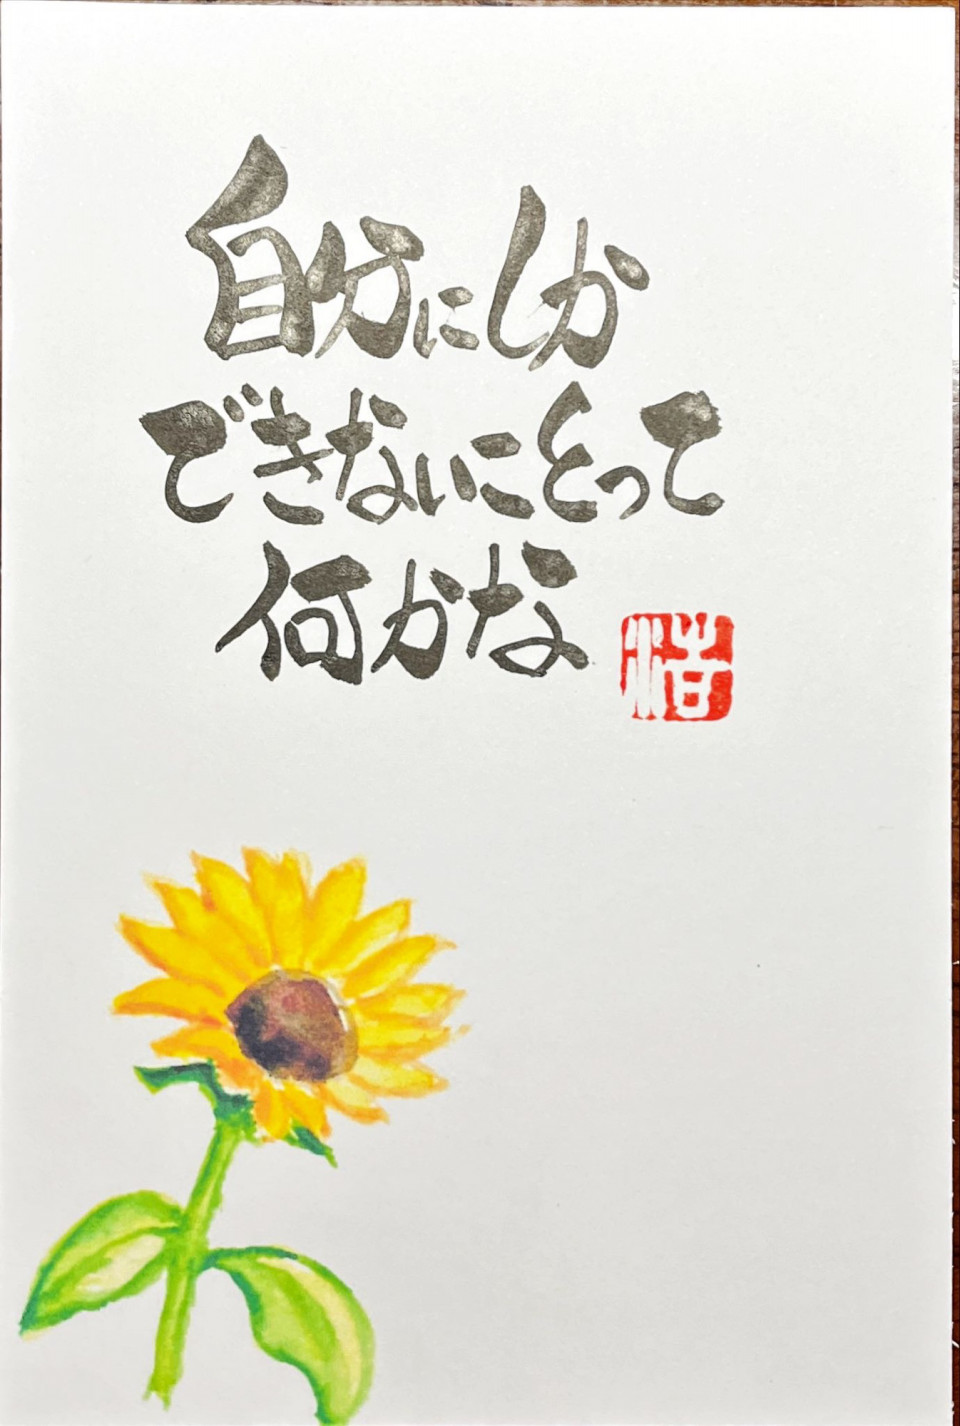 自分にしか
できないことって
何かな